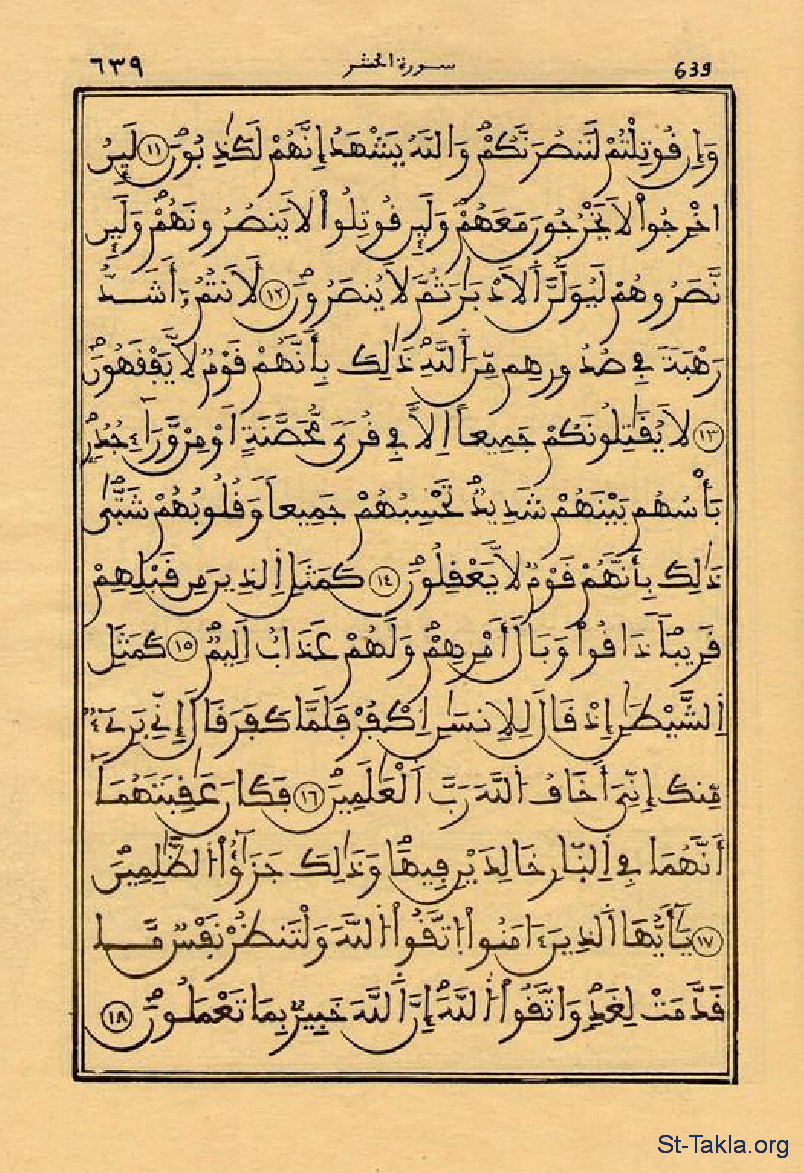 ٦٣٩ سورة الحشر 639
وَإِن قُوتِلْتُمْ لَنَنصُرَنَّكُمْ وَاللَّهُ يَشْهَدُ إِنَّهُمْ لَكَٰذِبُونَ ١١ لَئِنْ
اُخْرِجُواْ لَا يَخْرُجُونَ مَعَهُمْ وَلَئِن قُوتِلُواْ لَا يَنصُرُونَهُمْ وَلَئِن
نَّصَرُوهُمْ لَيُوَلُّنَّ اَلَادْبَٰرَ ثُمَّ لَا يُنصَرُونَ ١٢ لَأَنتُمُۥ أَشَدُّ
رَهْبَةً فِي صُدُورِهِم مِّنَ اَللَّهِ ذَٰلِكَ بِأَنَّهُمْ قَوْمٌ لَّا يَفْقَهُونَ
١٣ لَا يُقَٰتِلُونَكُمْ جَمِيعاً اِلَّا فِي قُرىً مُّحَصَّنَةٍ اَوْ مِنْ وَّرَآءِ جُدُرٍ
بَأْسُهُم بَيْنَهُمْ شَدِيدٌ تَحْسِبُهُمْ جَمِيعاً وَقُلُوبُهُمْ شَتَّىٰ
ذَٰلِكَ بِأَنَّهُمْ قَوْمٌ لَّا يَعْقِلُونَ ١٤ كَمَثَلِ اِلذِينَ مِن قَبْلِهِمْ
قَرِيباً ذَاقُواْ وَبَالَ أَمْرِهِمْ وَلَهُمْ عَذَابٌ اَلِيمٌ ١٥ كَمَثَلِ
اِلشَّيْطَٰنِ إِذْ قَالَ لِلِانسَٰنِ اِكْفُرْ فَلَمَّا كَفَرَ قَالَ إِنِّي بَرِيٓءٌ
مِّنكَ إِنِّيَ أَخَافُ اُللَّهَ رَبَّ اَلْعَٰلَمِينَ ١٦ فَكَانَ عَٰقِبَتَهُمَا
أَنَّهُمَا فِي اِلنَّارِ خَالِدَيْنِ فِيهَا وَذَٰلِكَ جَزَٰٓؤُاْ اُلظَّٰلِمِينَ
١٧ يَٰٓأَيُّهَا اَلذِينَ ءَامَنُواْ اُتَّقُواْ اُللَّهَ وَلْتَنظُرْ نَفْسٌ مَّا
قَدَّمَتْ لِغَدٍ وَاتَّقُواْ اُللَّهَ إِنَّ اَللَّهَ خَبِيرٌ بِمَا تَعْمَلُونَ ١٨
St-Takla.org